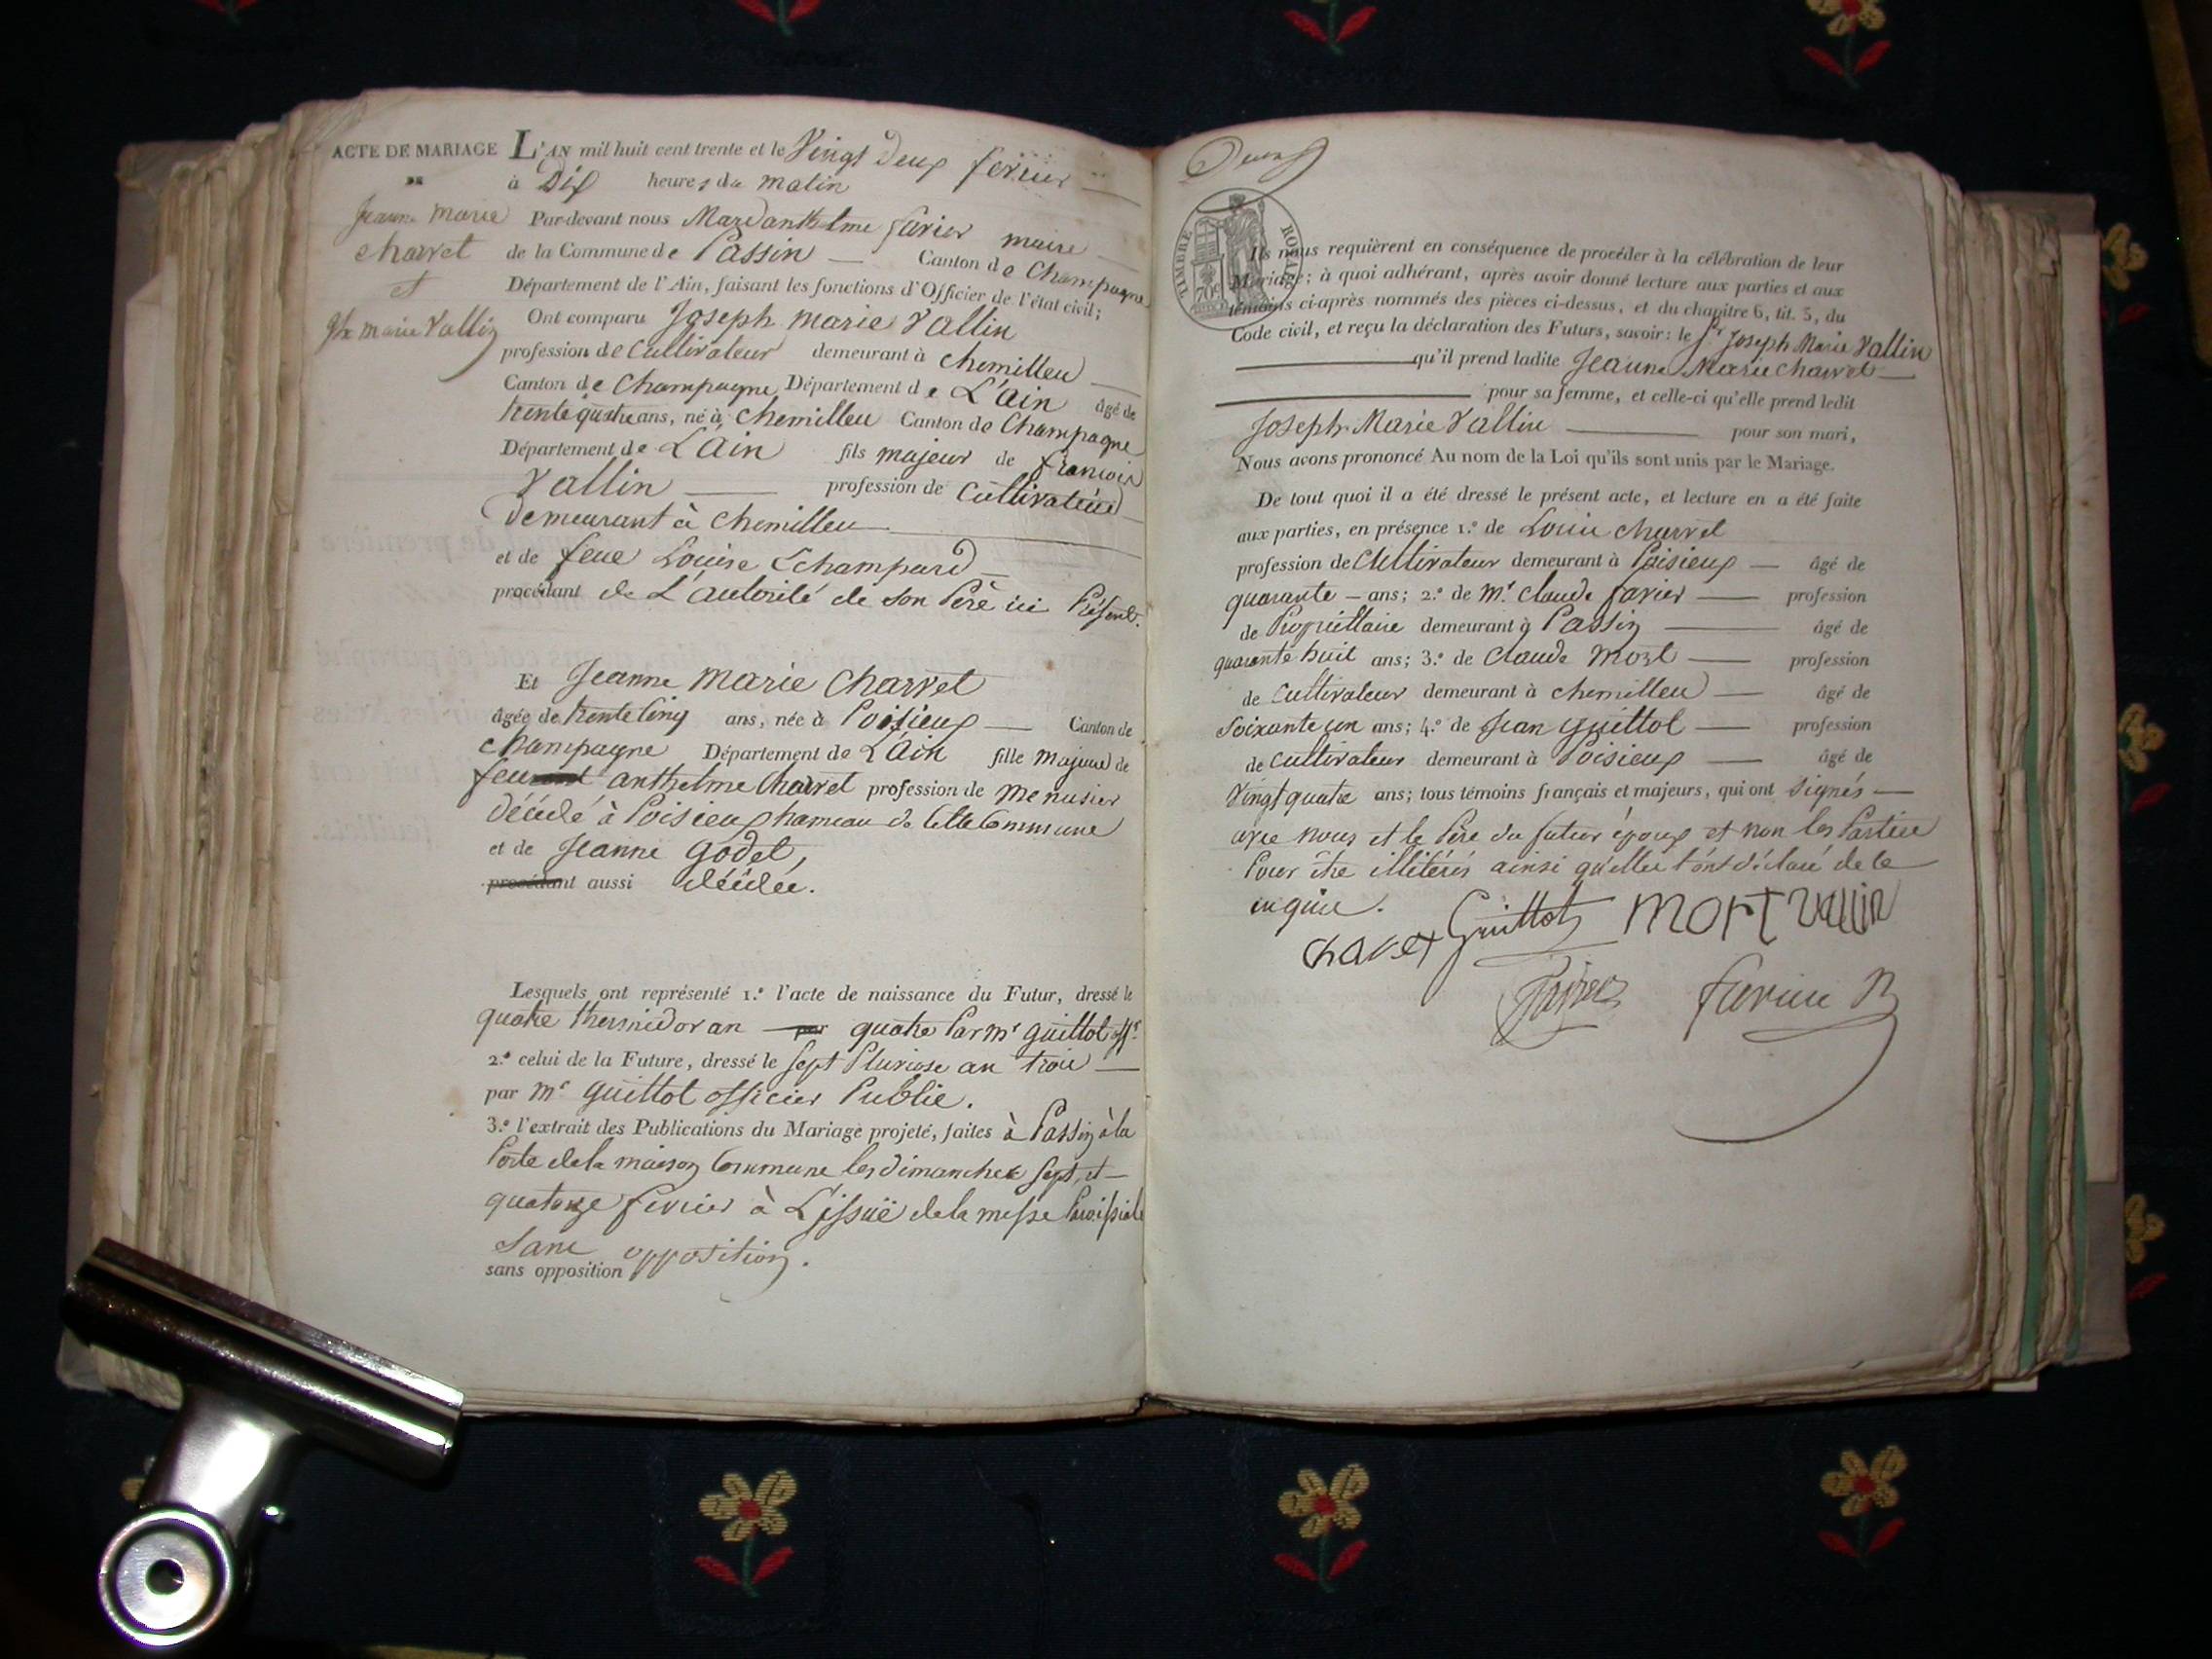 ACTE DE MARIAGE
DE
Jeanne Marie
charvet
et
Jh marie Vallin
L'AN mil huit cent trente et le Vingt deux fevrier
à Dix heures du matin
Par-devant nous Marc anthelme favier maire
de la Commune de Passin — Canton de Champagne
Département de l'Ain, faisant les fonctions d'Officier de l'état civil;
Ont comparu Joseph Marie Vallin
profession de Cultivateur demeurant à chemilleu
Canton de Champagne Département de L'ain âgé de
trente quatre ans, né à chemilleu Canton de Champagne
Département de L'ain fils majeur de francois
Vallin — profession de Cultivateur
demeurant à chemilleu
et de feue Louise Echampard
procédant de L'autorité de son Père ici Présent.
Et Jeanne Marie Charvet
âgée de trente cinq ans, née à Poisieux — Canton de
champagne Département de L'Ain fille majeure de
feu anthelme Charvet profession de menusier
décédé à Poisieux hameau de Cette Commune
et de Jeanne Godet,
procédant aussi décédée.
Lesquels ont représenté 1.º l'acte de naissance du Futur, dressé le
quatre thermidor an par quatre Par mr Guillot offr.
2.º celui de la Future, dressé le sept Pluviose an trois —
par mr Guillot officier Public.
3.º l'extrait des Publications du Mariage projeté, faites à Passin à la
Porte de la maison Commune les dimanches sept, et
quatorze fevrier à L'issuë de la messe Paroissiale
Sans opposition.
sans opposition
TIMBRE ROYAL
70c
Ils nous requièrent en conséquence de procéder à la célébration de leur
Mariage; à quoi adhérant, après avoir donné lecture aux parties et aux
témoins ci-après nommés des pièces ci-dessus, et du chapitre 6, tit. 5, du
Code civil, et reçu la déclaration des Futurs, savoir: le Sr Joseph Marie Vallin
qu'il prend ladite Jeanne Marie Charvet
pour sa femme, et celle-ci qu'elle prend ledit
Joseph Marie Vallin pour son mari,
Nous avons prononcé Au nom de la Loi qu'ils sont unis par le Mariage.
De tout quoi il a été dressé le présent acte, et lecture en a été faite
aux parties, en présence 1.º de Louis charvet
profession de Cultivateur demeurant à Poisieux — âgé de
quarante — ans; 2.º de Mr. Claude favier — profession
de Propriettaire demeurant à Passin — âgé de
quarante huit ans; 3.º de Claude Mort — profession
de Cultivateur demeurant à chemilleu — âgé de
Soixante un ans; 4.º de Jean Guillot — profession
de Cultivateur demeurant à Poisieux — âgé de
Vingt quatre ans; tous témoins français et majeurs, qui ont signés —
avec nous et le Père du futur époux et non les Parties
Pour être illitérés ainsi qu'elles l'ont déclaré de ce
enquis.
chavet Guillot MORT Vallin
favier favier